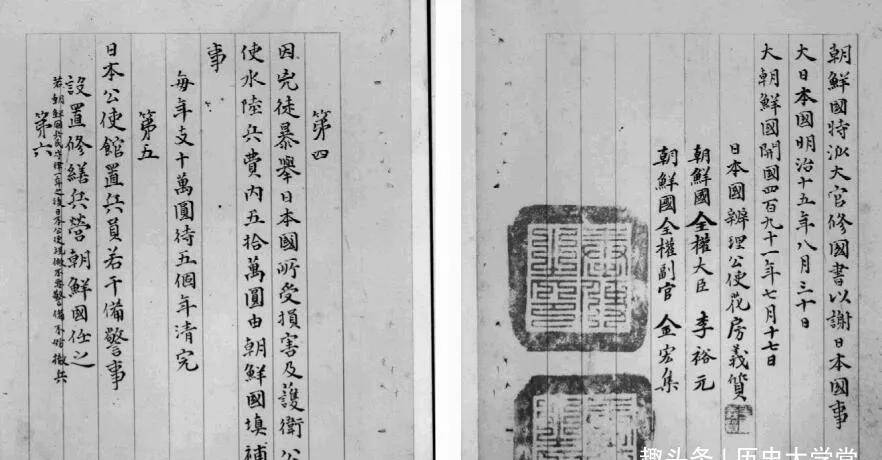 第四
因兇徒暴舉日本國所受損害及護衛公
使水陸兵費內五拾萬圓由朝鮮國填補
事
每年支十萬圓待五個年清完
第五
日本公使館置兵員若干備警事
設置修繕兵營朝鮮國任之
若朝鮮國兵民守律一年之後日本公使視做不要警備不妨撤兵
第六
朝鮮國特派大官修國書以謝日本國事
大日本國明治十五年八月三十日
大朝鮮國開國四百九十一年七月十七日
日本國辨理公使花房義質
朝鮮國全權大臣 李裕元
朝鮮國全權副官 金宏集
趣头条 | 历史大学堂